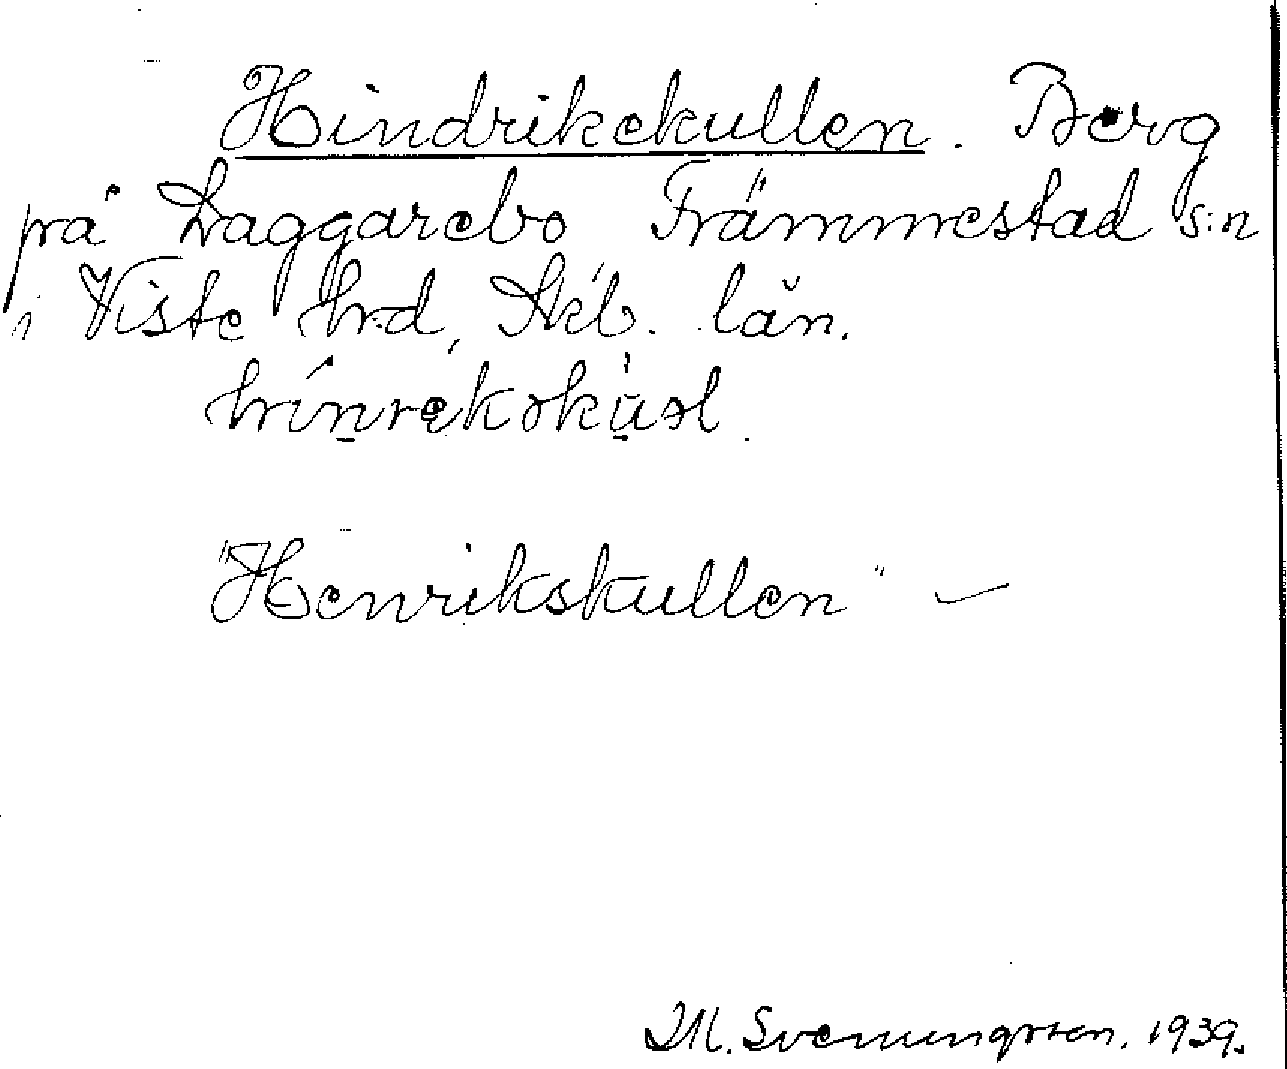 Hindrikekullen. Berg
på Laggarebo Främmestad s:n
i Viste hrd, Skb. län.
"Henrikskullen" —
M. Svenungsson. 1939.